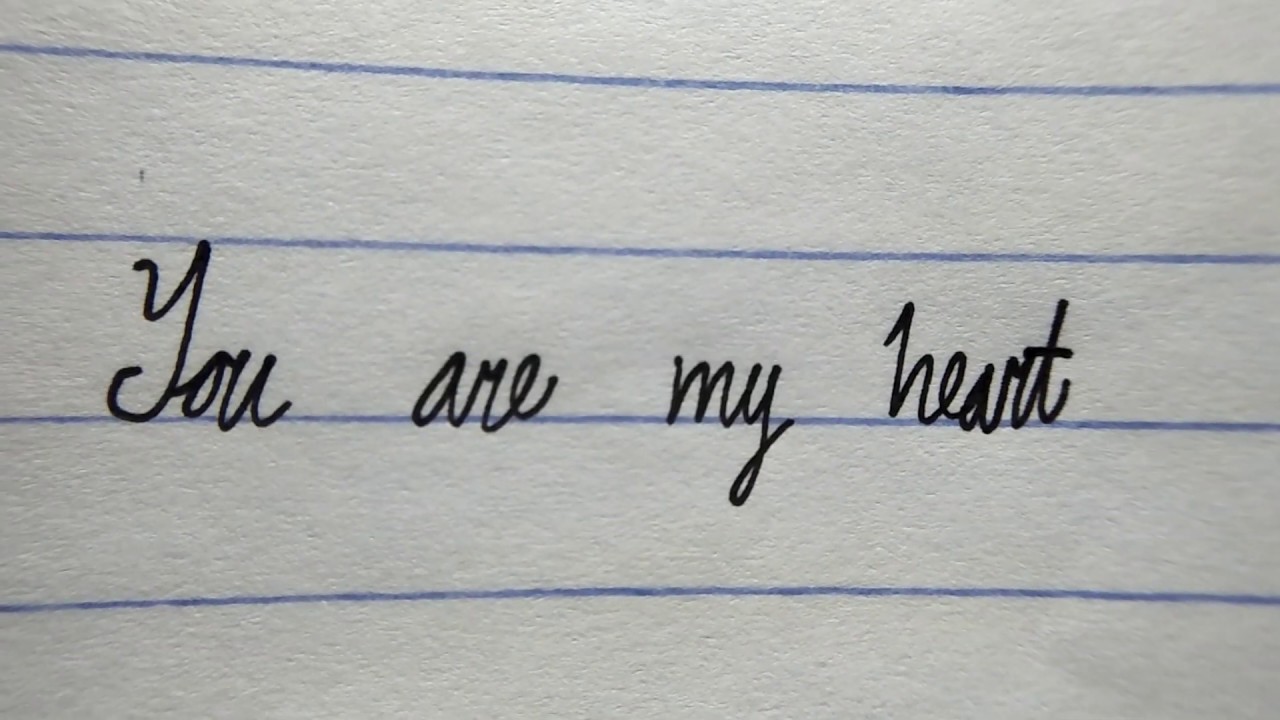 You are my heart